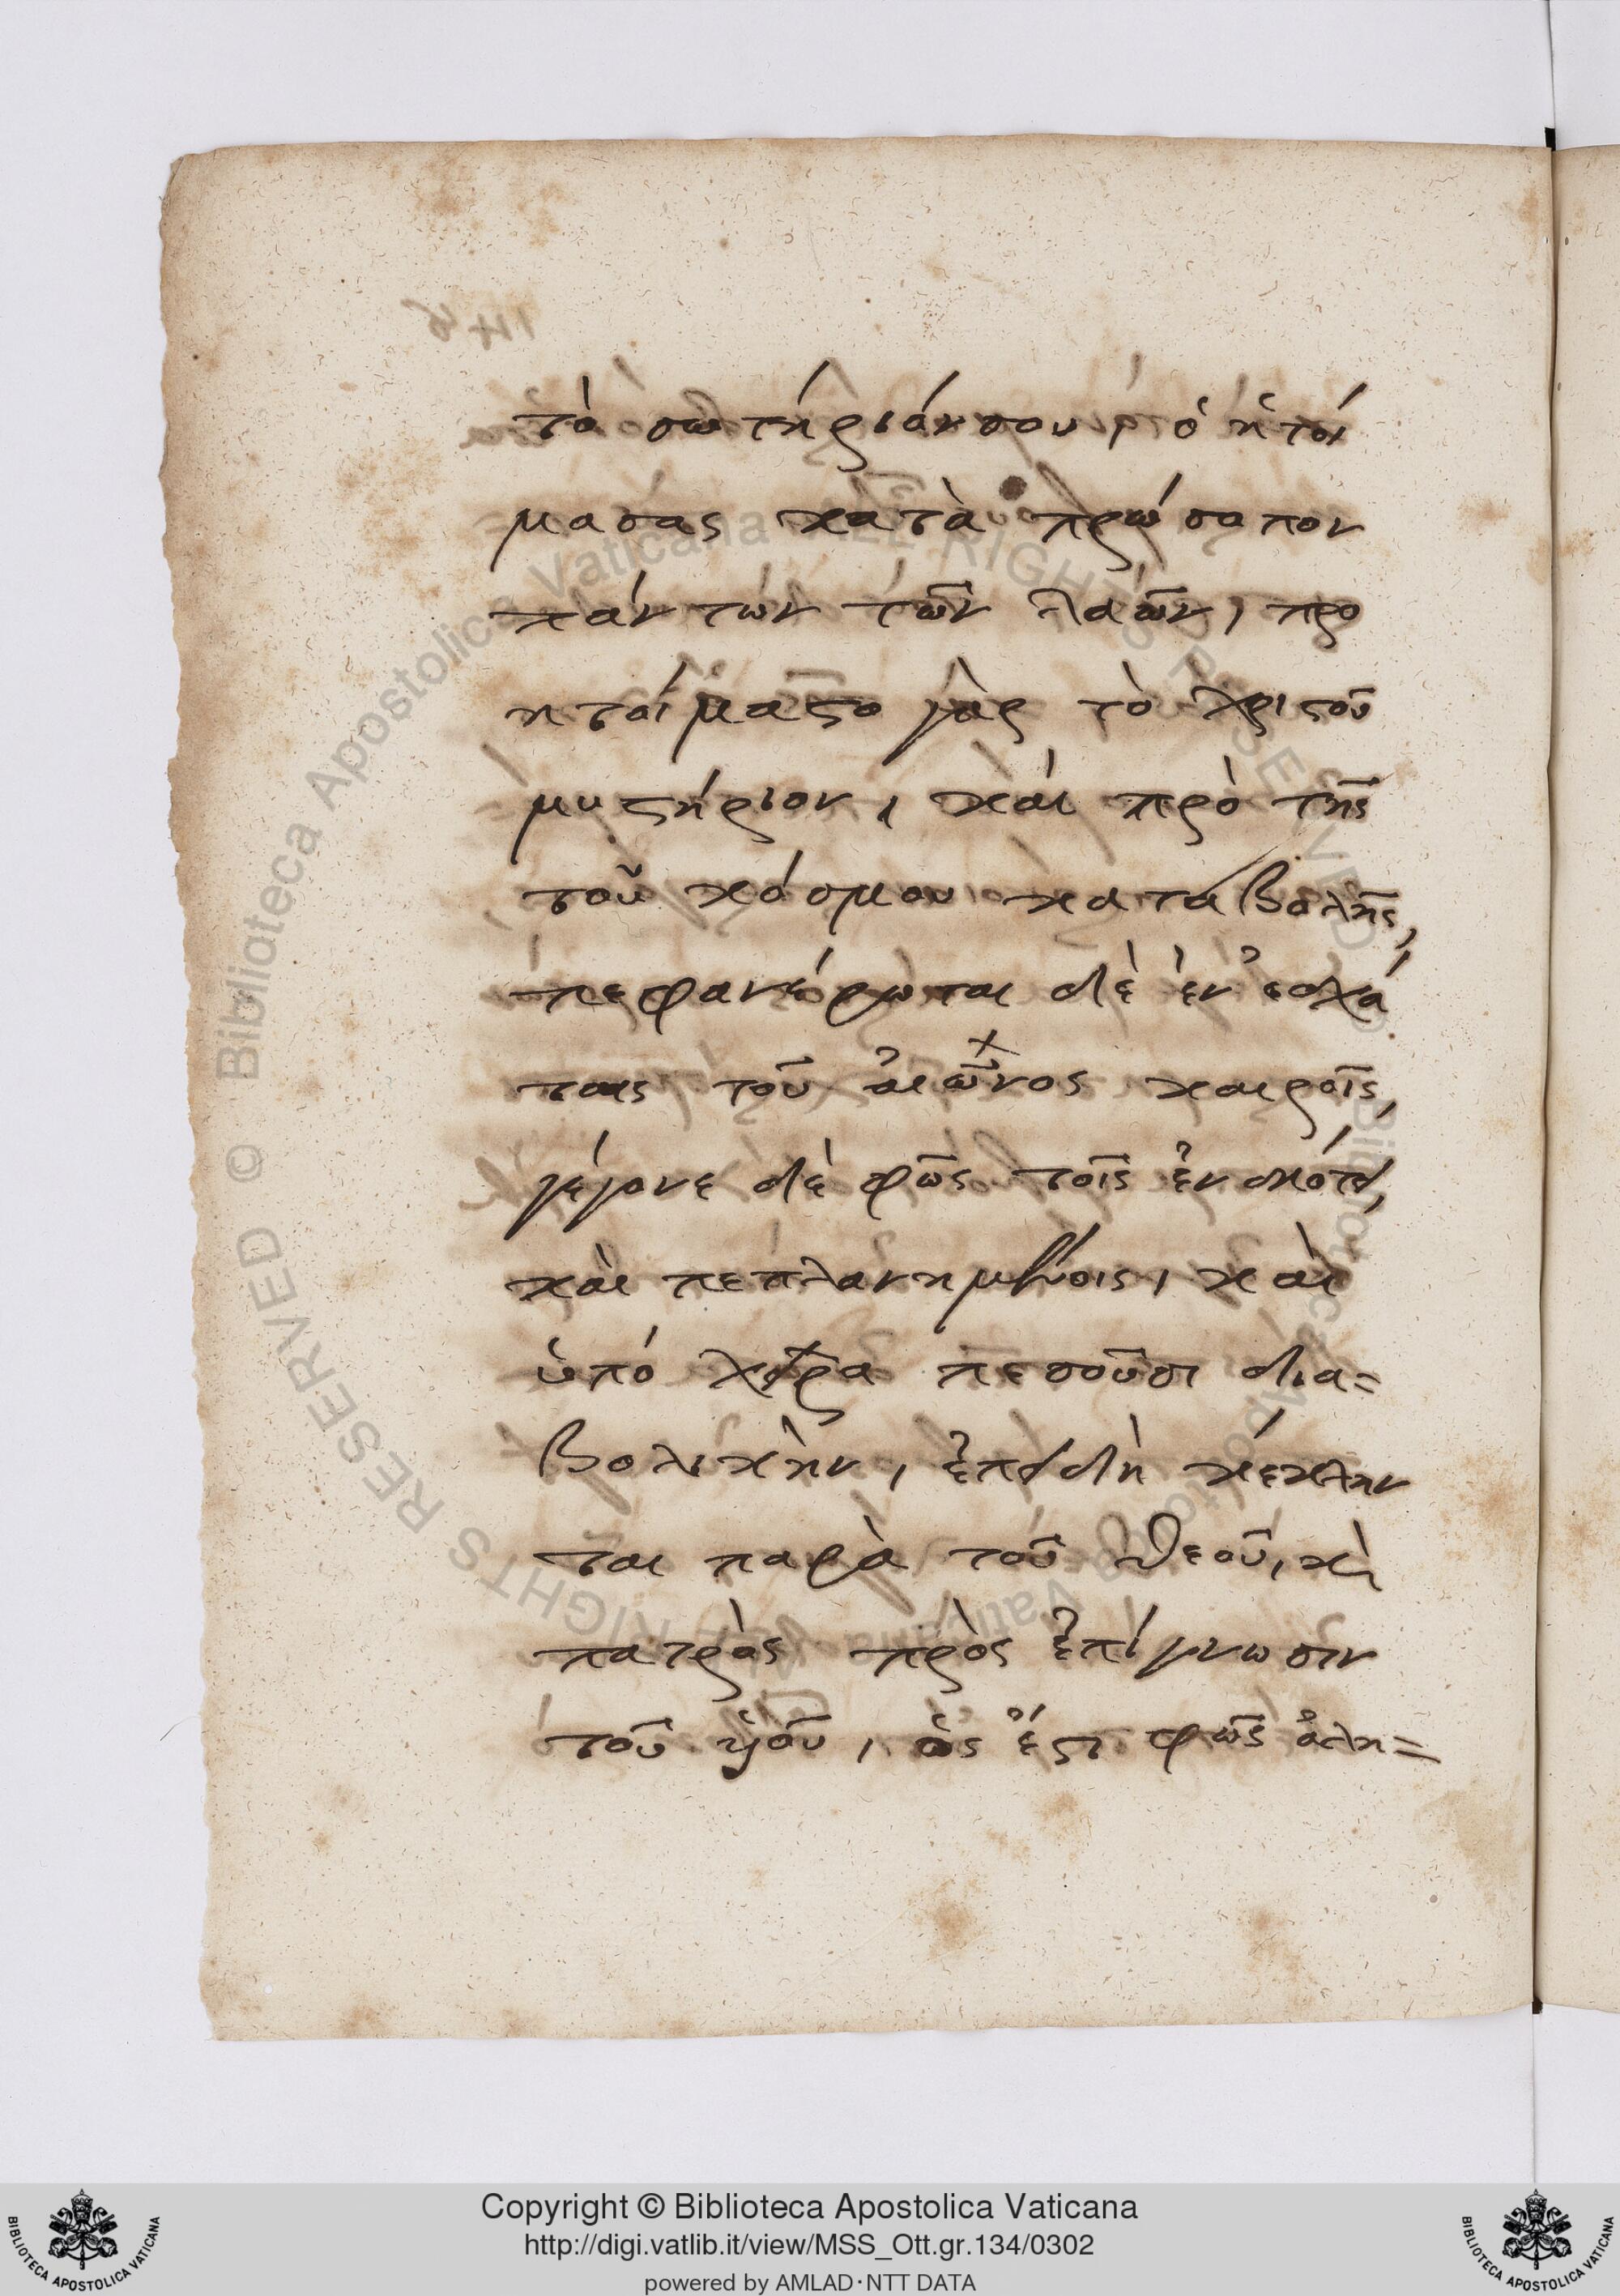 τὸ σωτήριόν σου, ὁ ἡτοί
μασας κατὰ πρώσοπον
πάντων τῶν λαῶν, προ
ητοίμαστο γὰρ τὸ χριστοῦ
μυστήριον, καὶ πρὸ τῆς
τοῦ κόσμου καταβολῆς,
πεφανέρωται δὲ ἐν ἐσχά
τοις τοῦ αἰῶνος καιροῖς,
γέγονε δὲ φῶς τοῖς ἐν σκότει,
καὶ πεπλανημένοις, καὶ
ὑπὸ χεῖρα πεσοῦσι δια=
βολικὴν, ἐπειδὴ κέκλην
ται παρὰ τοῦ θεοῦ, κὶ
πατρὸς πρὸς ἐπίγνωσιν
τοῦ ὑιοῦ, ὅς ἔστι φῶς ἀλη=
Copyright © Biblioteca Apostolica Vaticana
http://digi.vatlib.it/view/MSS_Ott.gr.134/0302
powered by AMLAD·NTT DATA
BIBLIOTECA APOSTOLICA VATICANA
BIBLIOTECA APOSTOLICA VATICANA